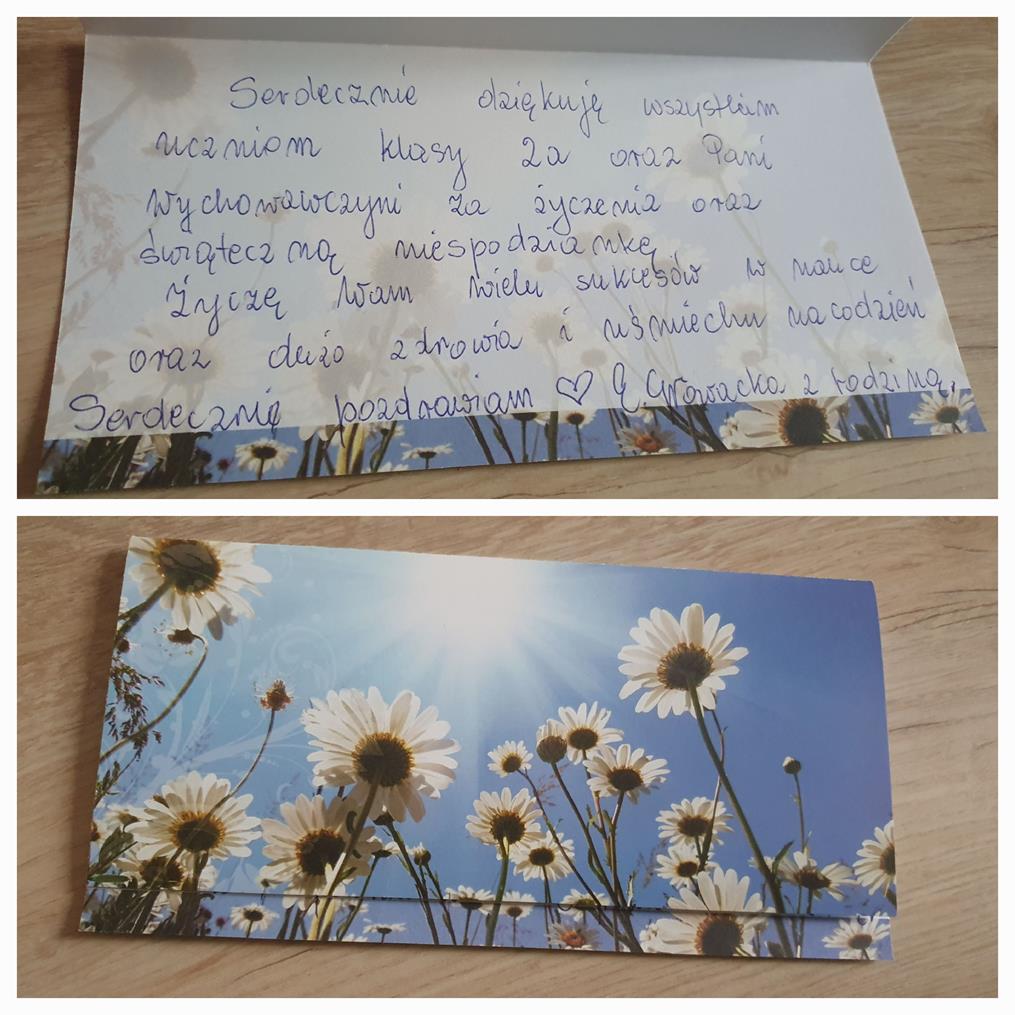 Serdecznie dziękuję wszystkim
uczniom klasy 2a oraz Pani
Wychowawczyni za życzenia oraz
świąteczną niespodziankę
Życzę Wam wielu sukcesów w nauce
oraz dużo zdrowia i uśmiechu na codzień
Serdecznie pozdrawiam ♡ E. Nowacka z rodziną.